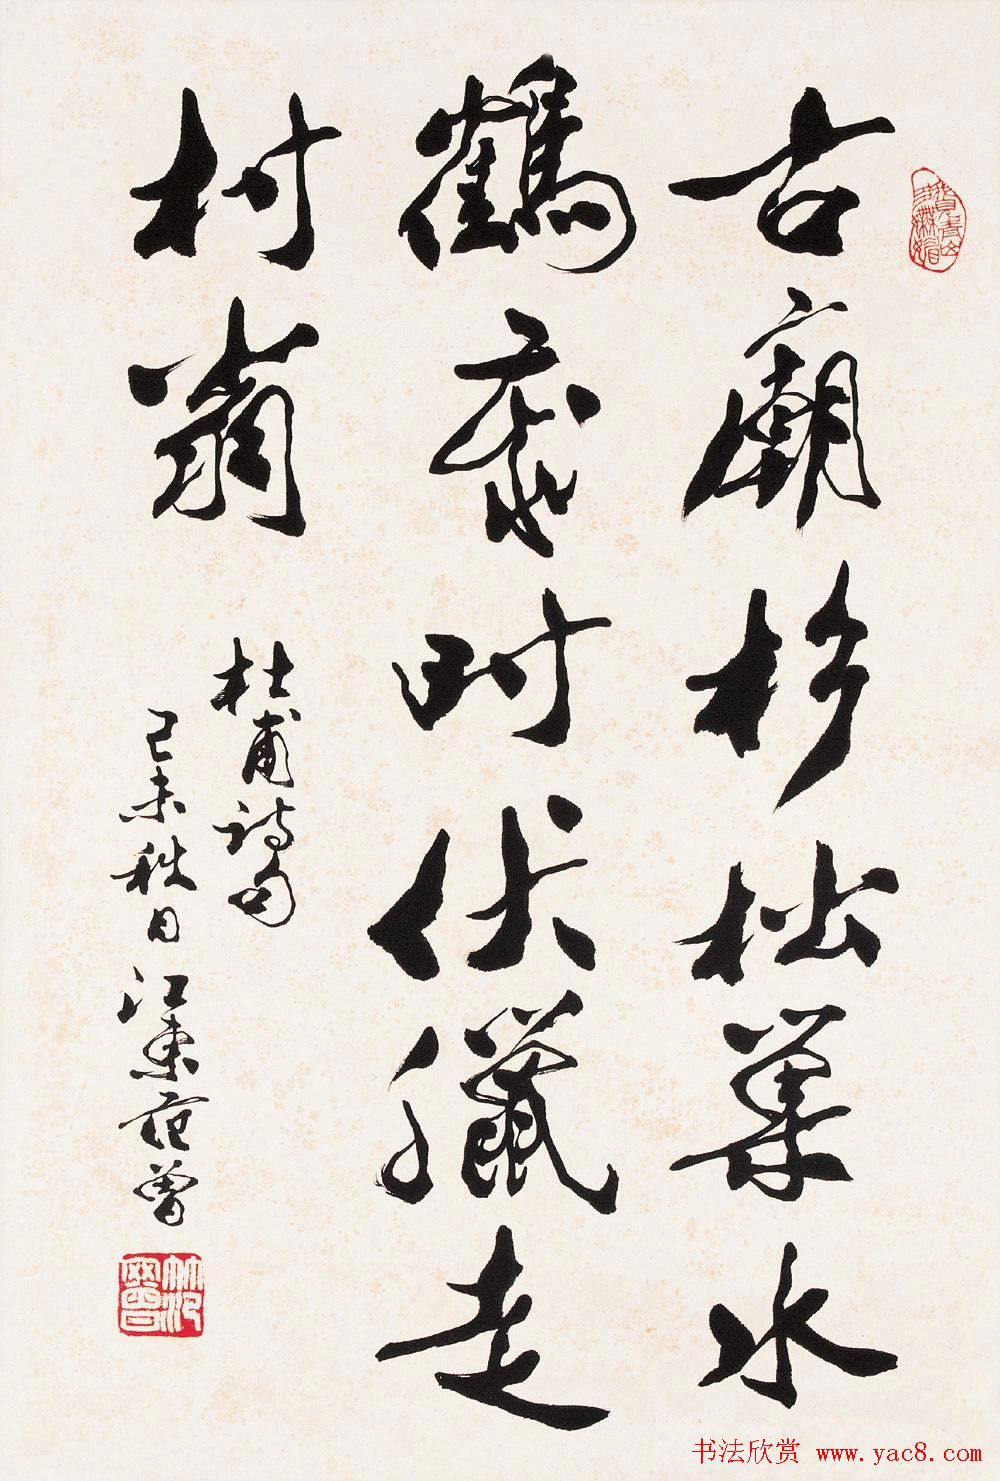 古廟杉松巢水
鶴歲时伏臘走
村翁
杜甫詩句
己未秋日江東范曾
范曾
书法欣赏 www.yac8.com